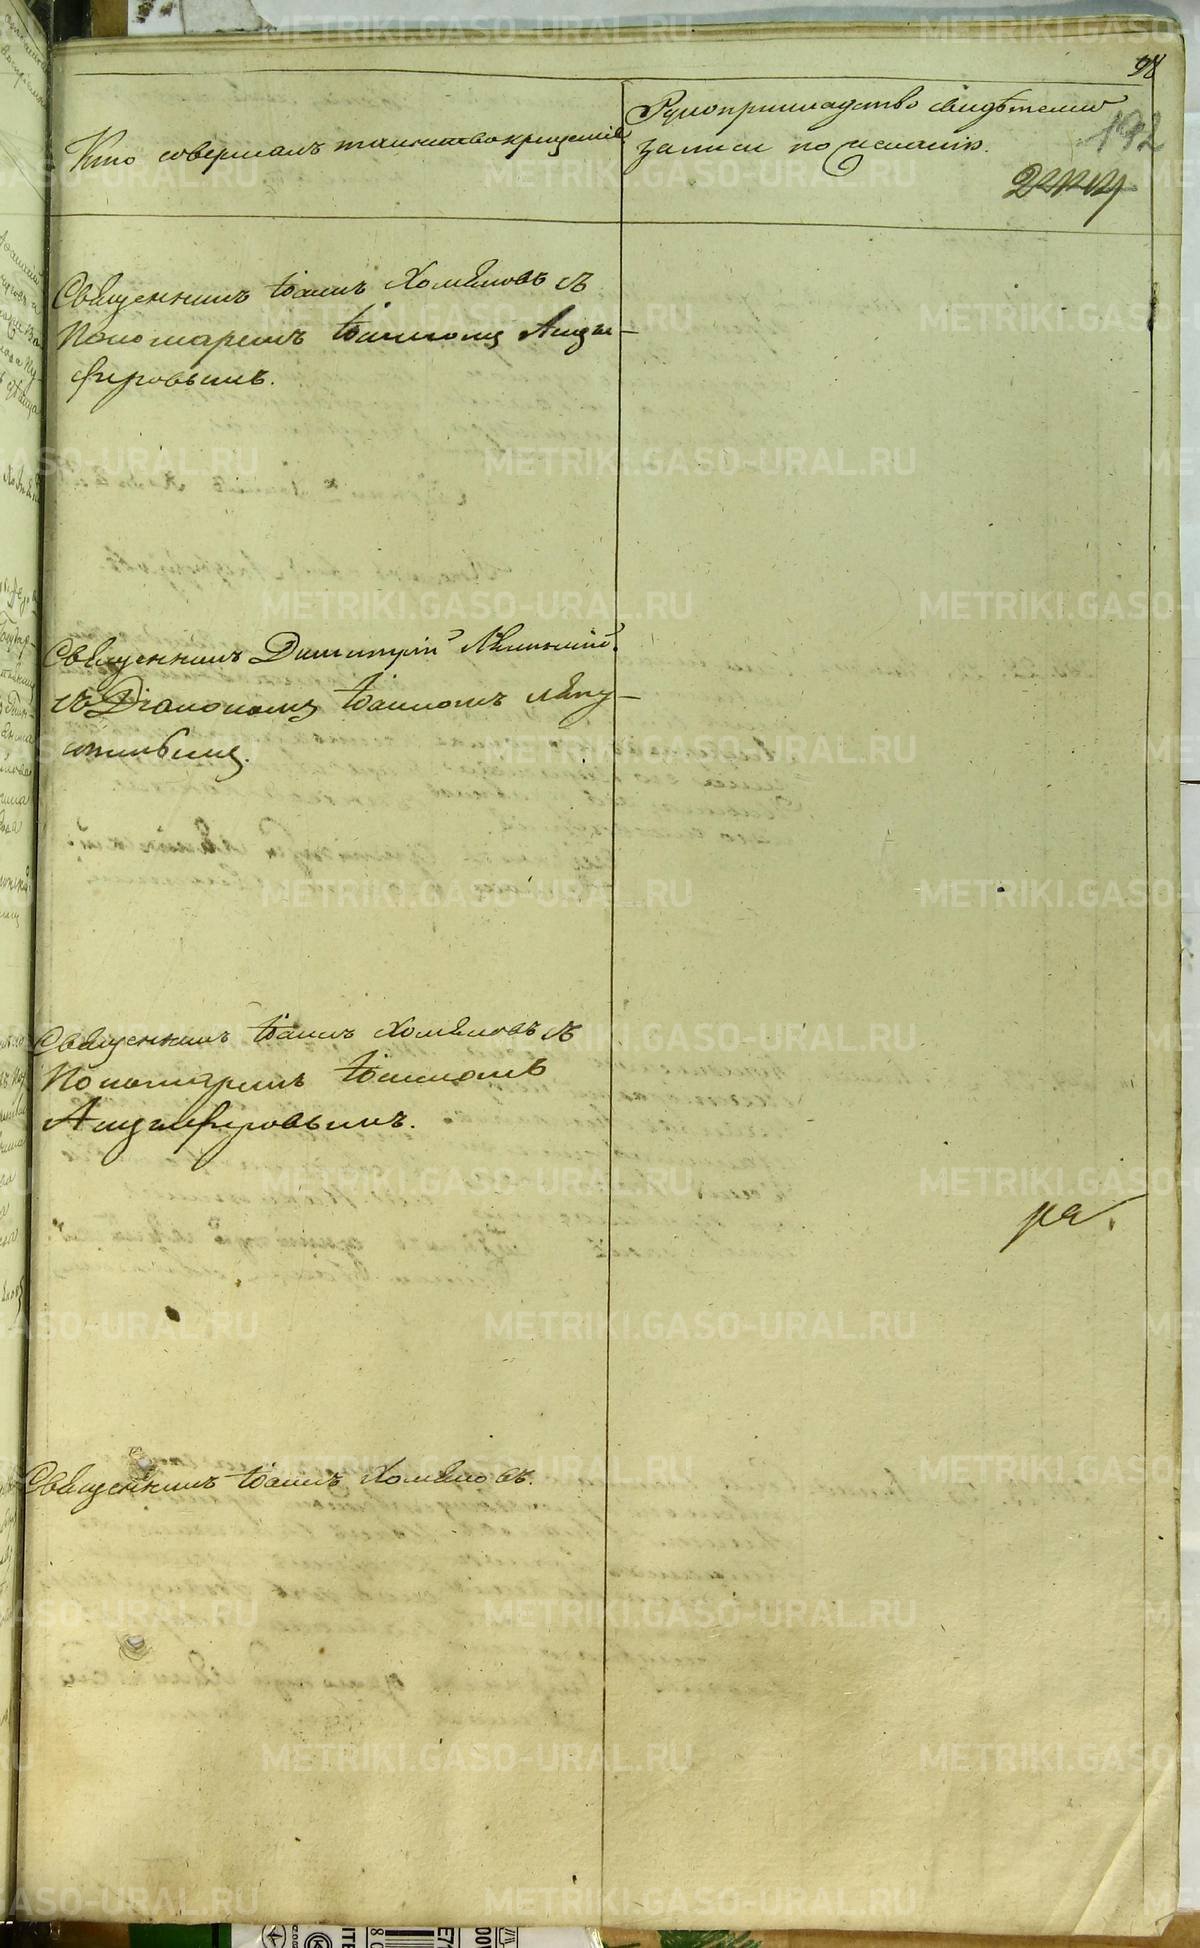 98
Кто совершалъ таинство крещенія
Рукоприкладство свидѣтелей
записи по желанію.
192
Священникъ Іоаннъ Хомяковъ съ
Пономаремъ Іоанномъ Анци-
феровымъ.
Священникъ Димитрій
съ Діакономъ Іоанномъ Лапу-
Священникъ Іоаннъ Хомяковъ съ
Пономаремъ Іоанномъ
Анциферовымъ.
ра.
Священникъ Іоаннъ Хомяковъ.
METRIKI.GASO-URAL.RU